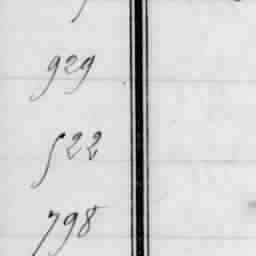 929
522
798